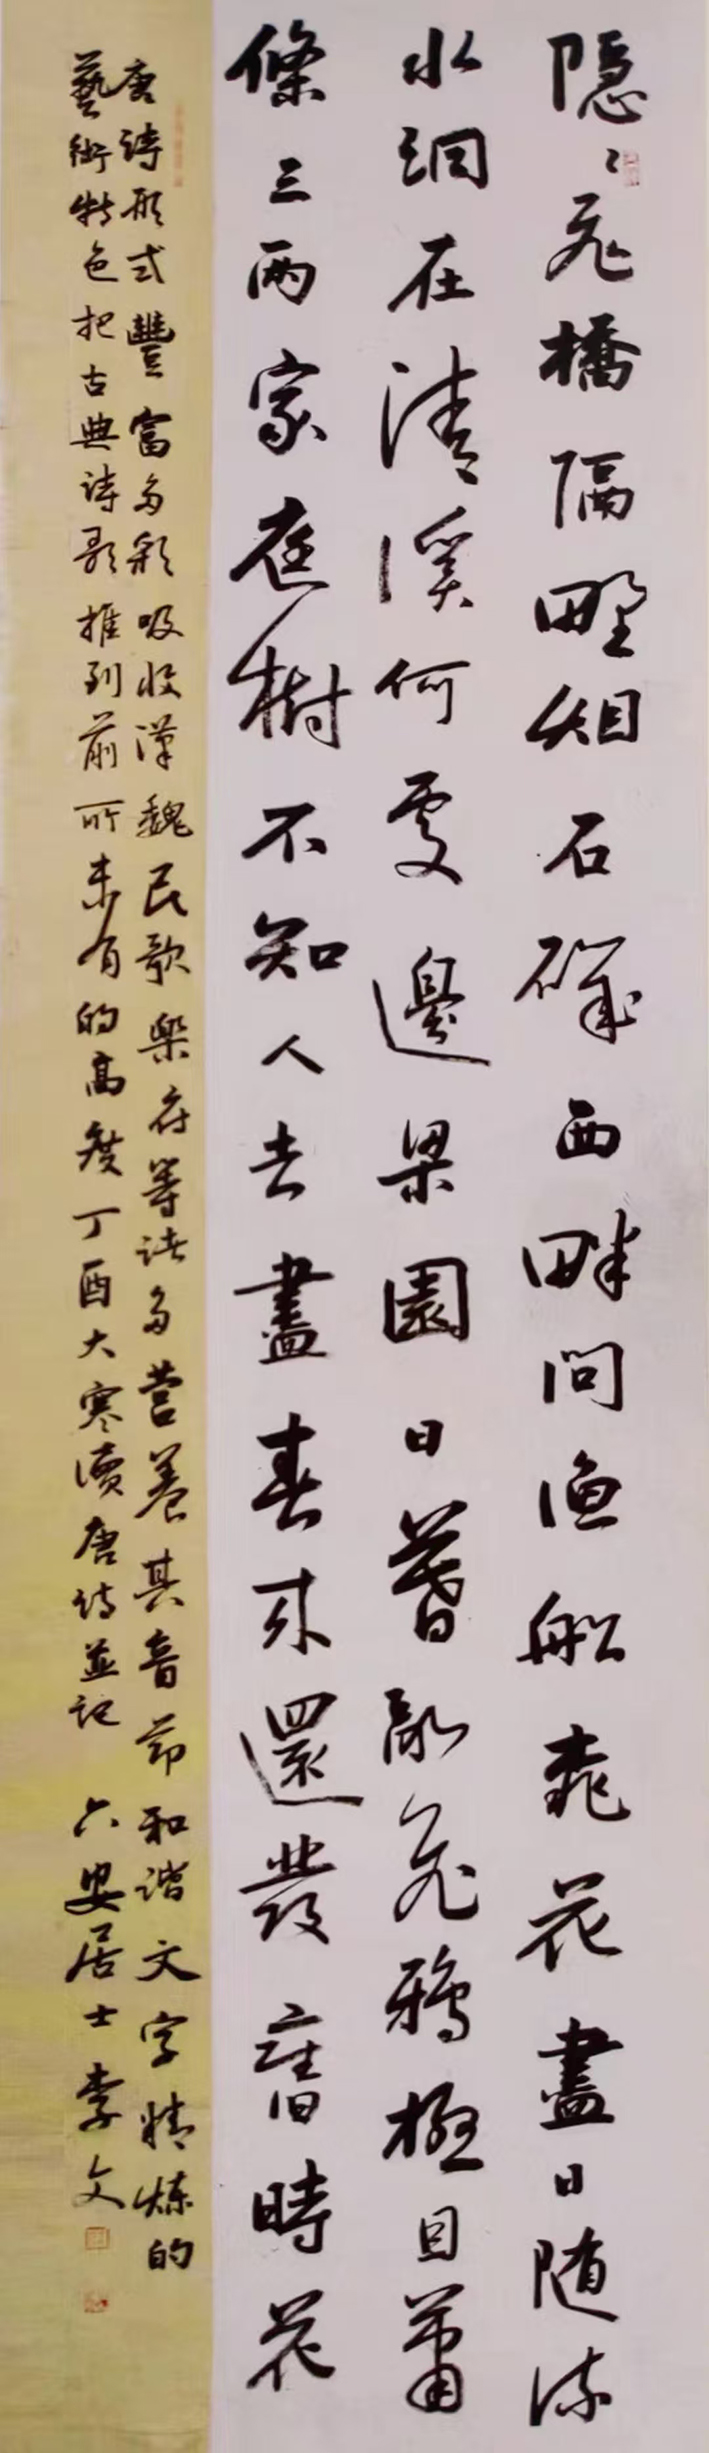 隱〻飛橋隔野烟石磯西畔問漁船桃花盡日隨流
水洞在清溪何處邊梁園日暮亂飛鴉極目蕭
條三兩家庭樹不知人去盡春來還發舊時花
唐詩形式豐富多彩吸收漢魏民歌樂府等諸多營養其音節和諧文字精炼的
藝術特色把古典詩歌推到前所未有的高度丁酉大寒讀唐詩並記 六安居士李文